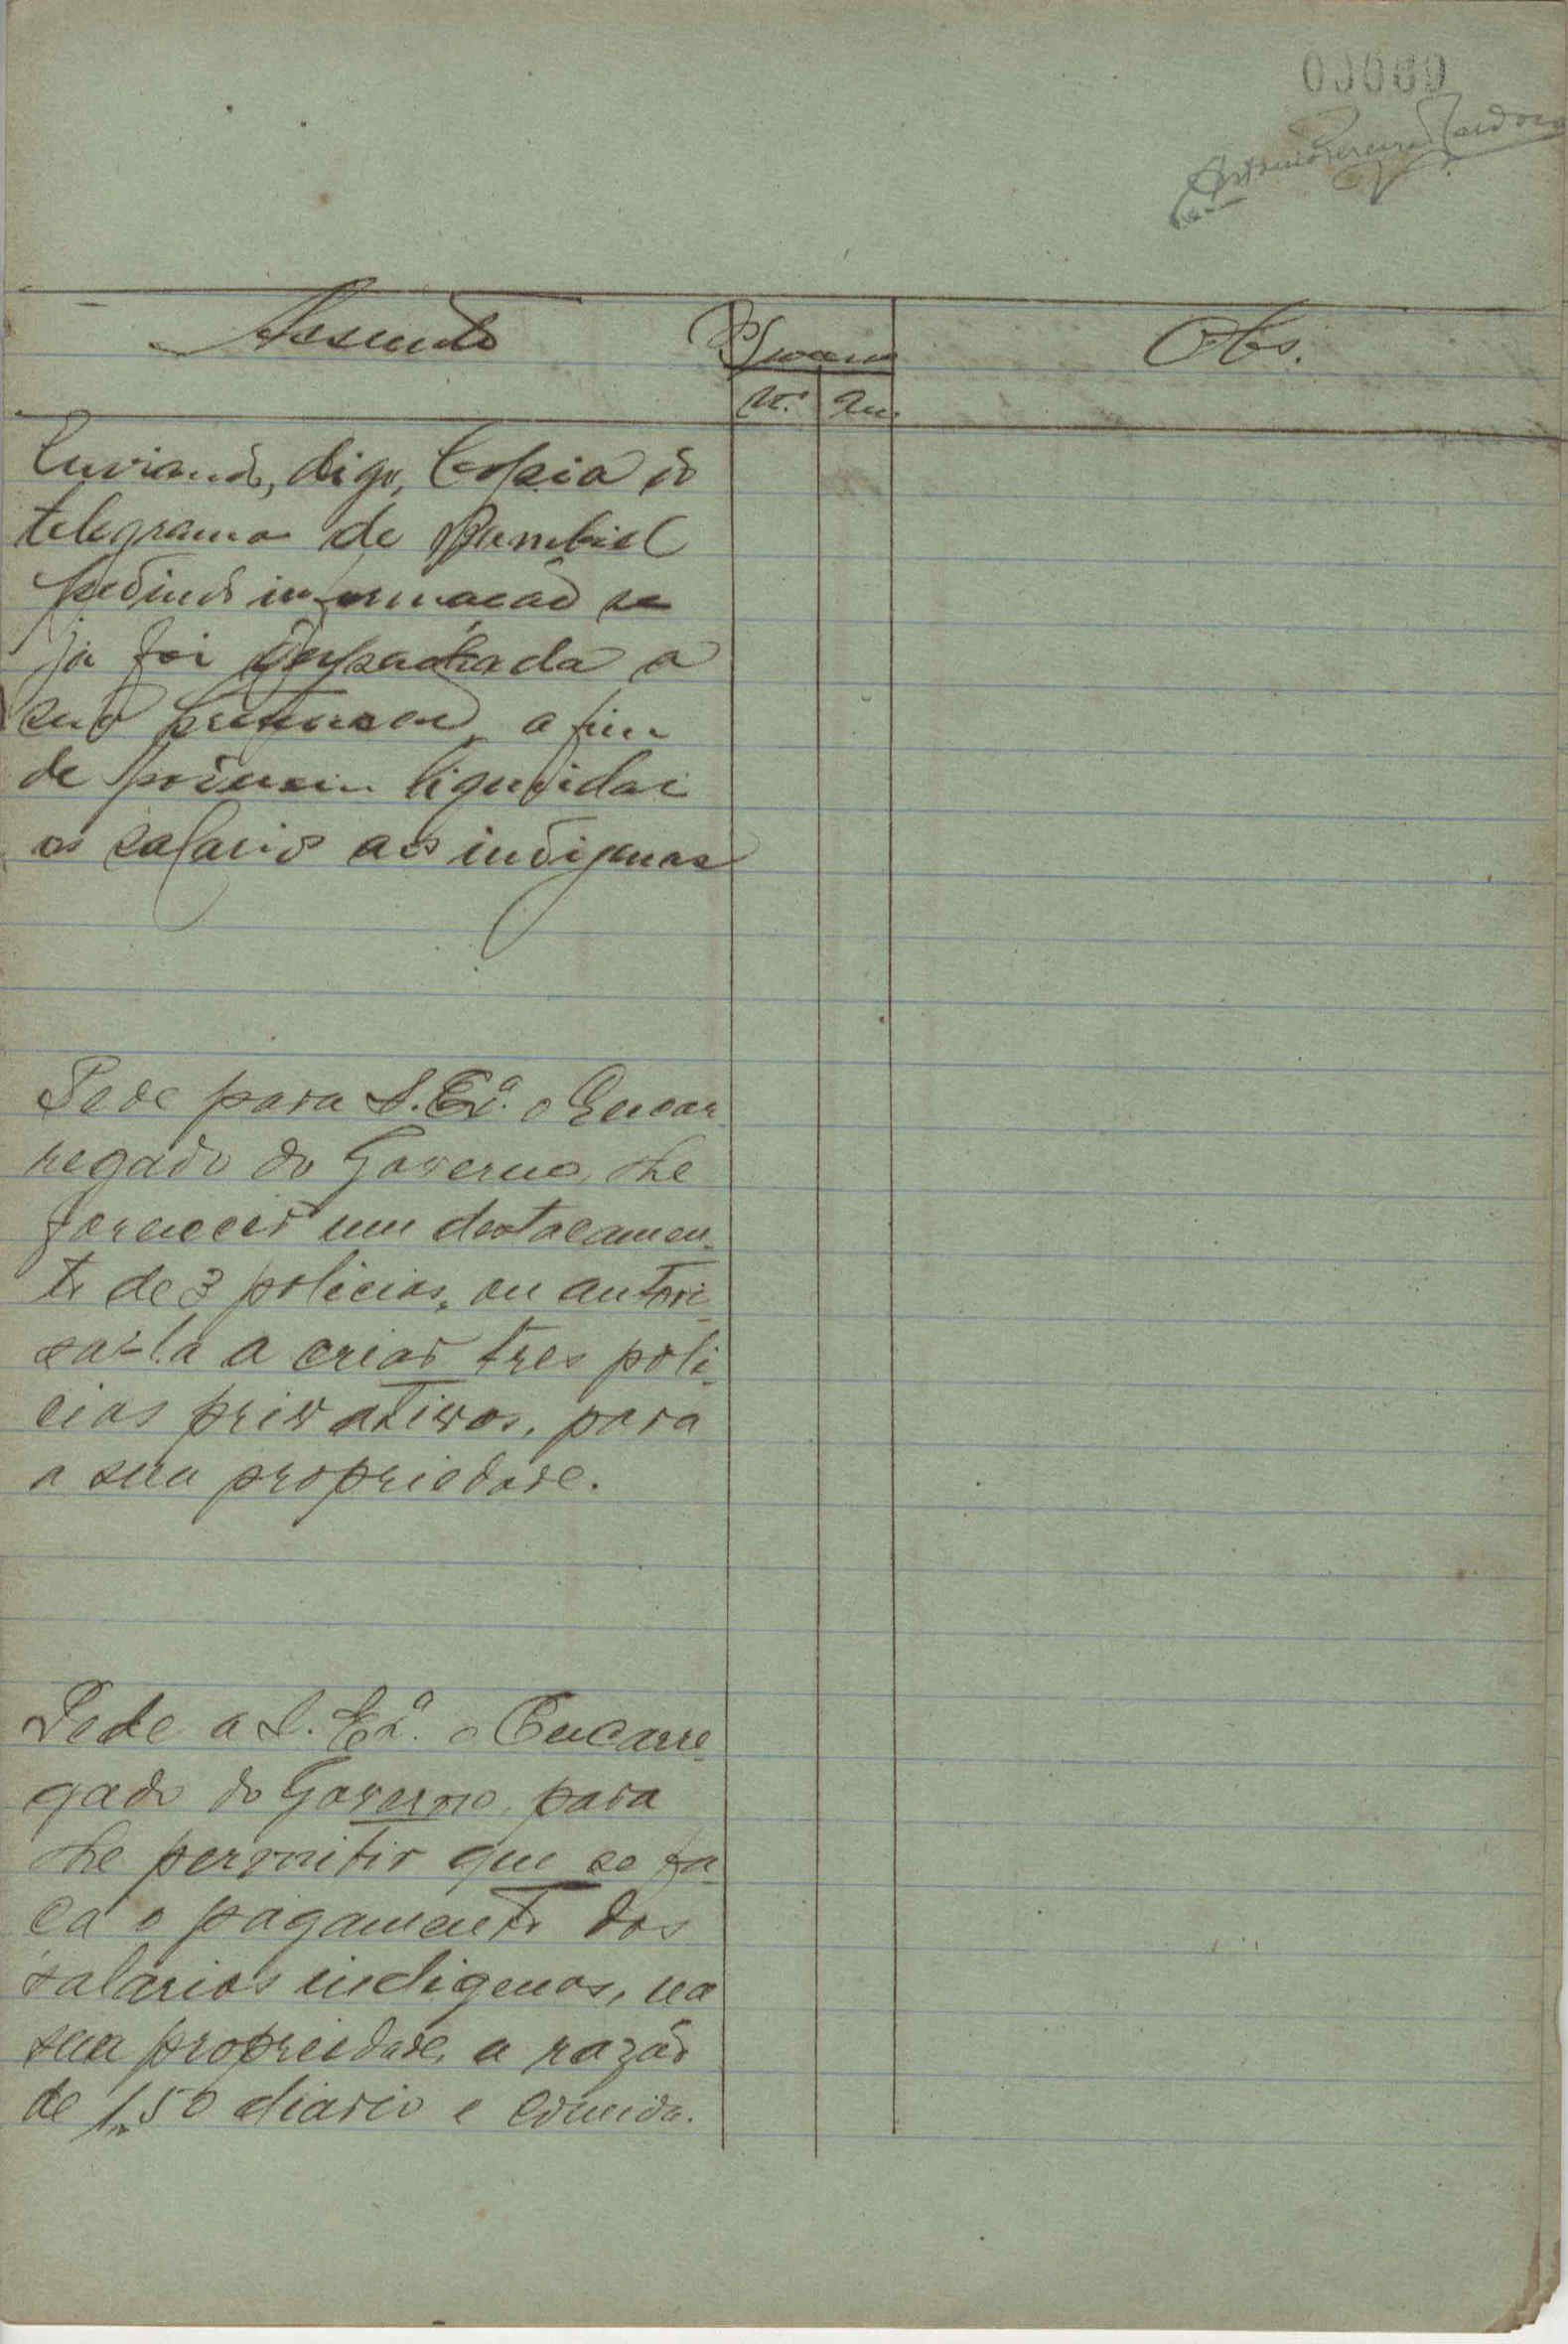 Assunto
Obs.
N.º
Enviando, digo, Copia do
telegrama de
pedindo informação se
já foi despachada a
sua pretensão, a fim
de poderem liquidar
os salarios aos indigenas
Pede para S. Ex.ª o Encar
regado do Governo, lhe
fornecer um destacamen-
to de 3 policias, ou autori-
sal-a a criar tres poli-
cias privativos, para
a sua propriedade.
Pede a S. Ex.ª o Encarre-
gado do Governo, para
lhe permitir que se fa-
ça o pagamento dos
salarios indigenas, na
sua propriedade, a razão
de 1,50 diario e comida.